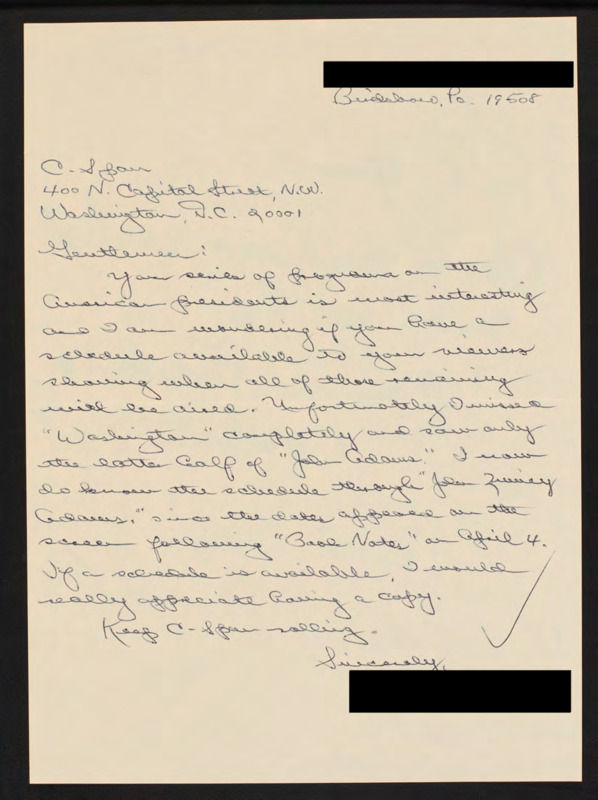 Birdsboro, Pa. 19508
C-Span
400 N. Capital Street, N.W.
Washington, D.C. 20001
Gentlemen:
Your series of programs on the
American presidents is most interesting
and I am wondering if you have a
schedule available to your viewers
showing when all of those remaining
will be aired. Unfortunately I missed
"Washington" completely and saw only
the latter half of "John Adams." I now
do know the schedule through "John Quincy
Adams," since the dates appeared on the
screen following "Book Notes" on April 4.
If a schedule is available, I would
really appreciate having a copy.
Keep C-Span rolling.
Sincerely,